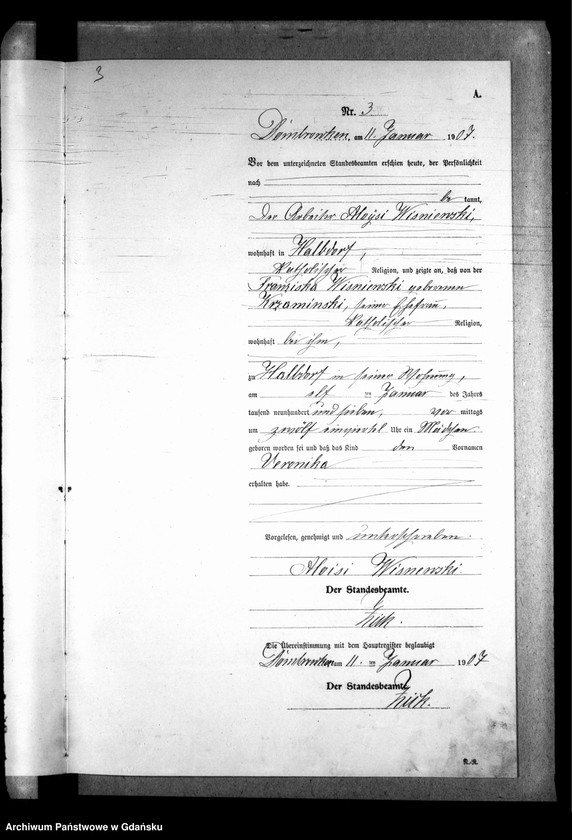 3
A.
Nr. 3
Dombrowken, am 11. Januar 1907.
Vor dem unterzeichneten Standesbeamten erschien heute, der Persönlichkeit
nach
be kannt,
Der Arbeiter Aloysi Wisniewski,
wohnhaft in Halbdorf,
katholischer Religion, und zeigte an, daß von der
Franziska Wisniewski geborenen
Krzaminski, seiner Ehefrau,
katholischer Religion,
wohnhaft bei ihm,
zu Halbdorf in seiner Wohnung,
am elf ten Januar des Jahres
tausend neunhundert und sieben, vor mittags
um zwölf einviertel Uhr ein Mädchen
geboren worden sei und daß das Kind den Vornamen
Veronika
erhalten habe.
Vorgelesen, genehmigt und unterschrieben.
Aloisi Wisnewski
Der Standesbeamte.
Die Übereinstimmung mit dem Hauptregister beglaubigt
Dombrowken am 11. ten Januar 1907
Der Standesbeamte.
Archiwum Państwowe w Gdańsku